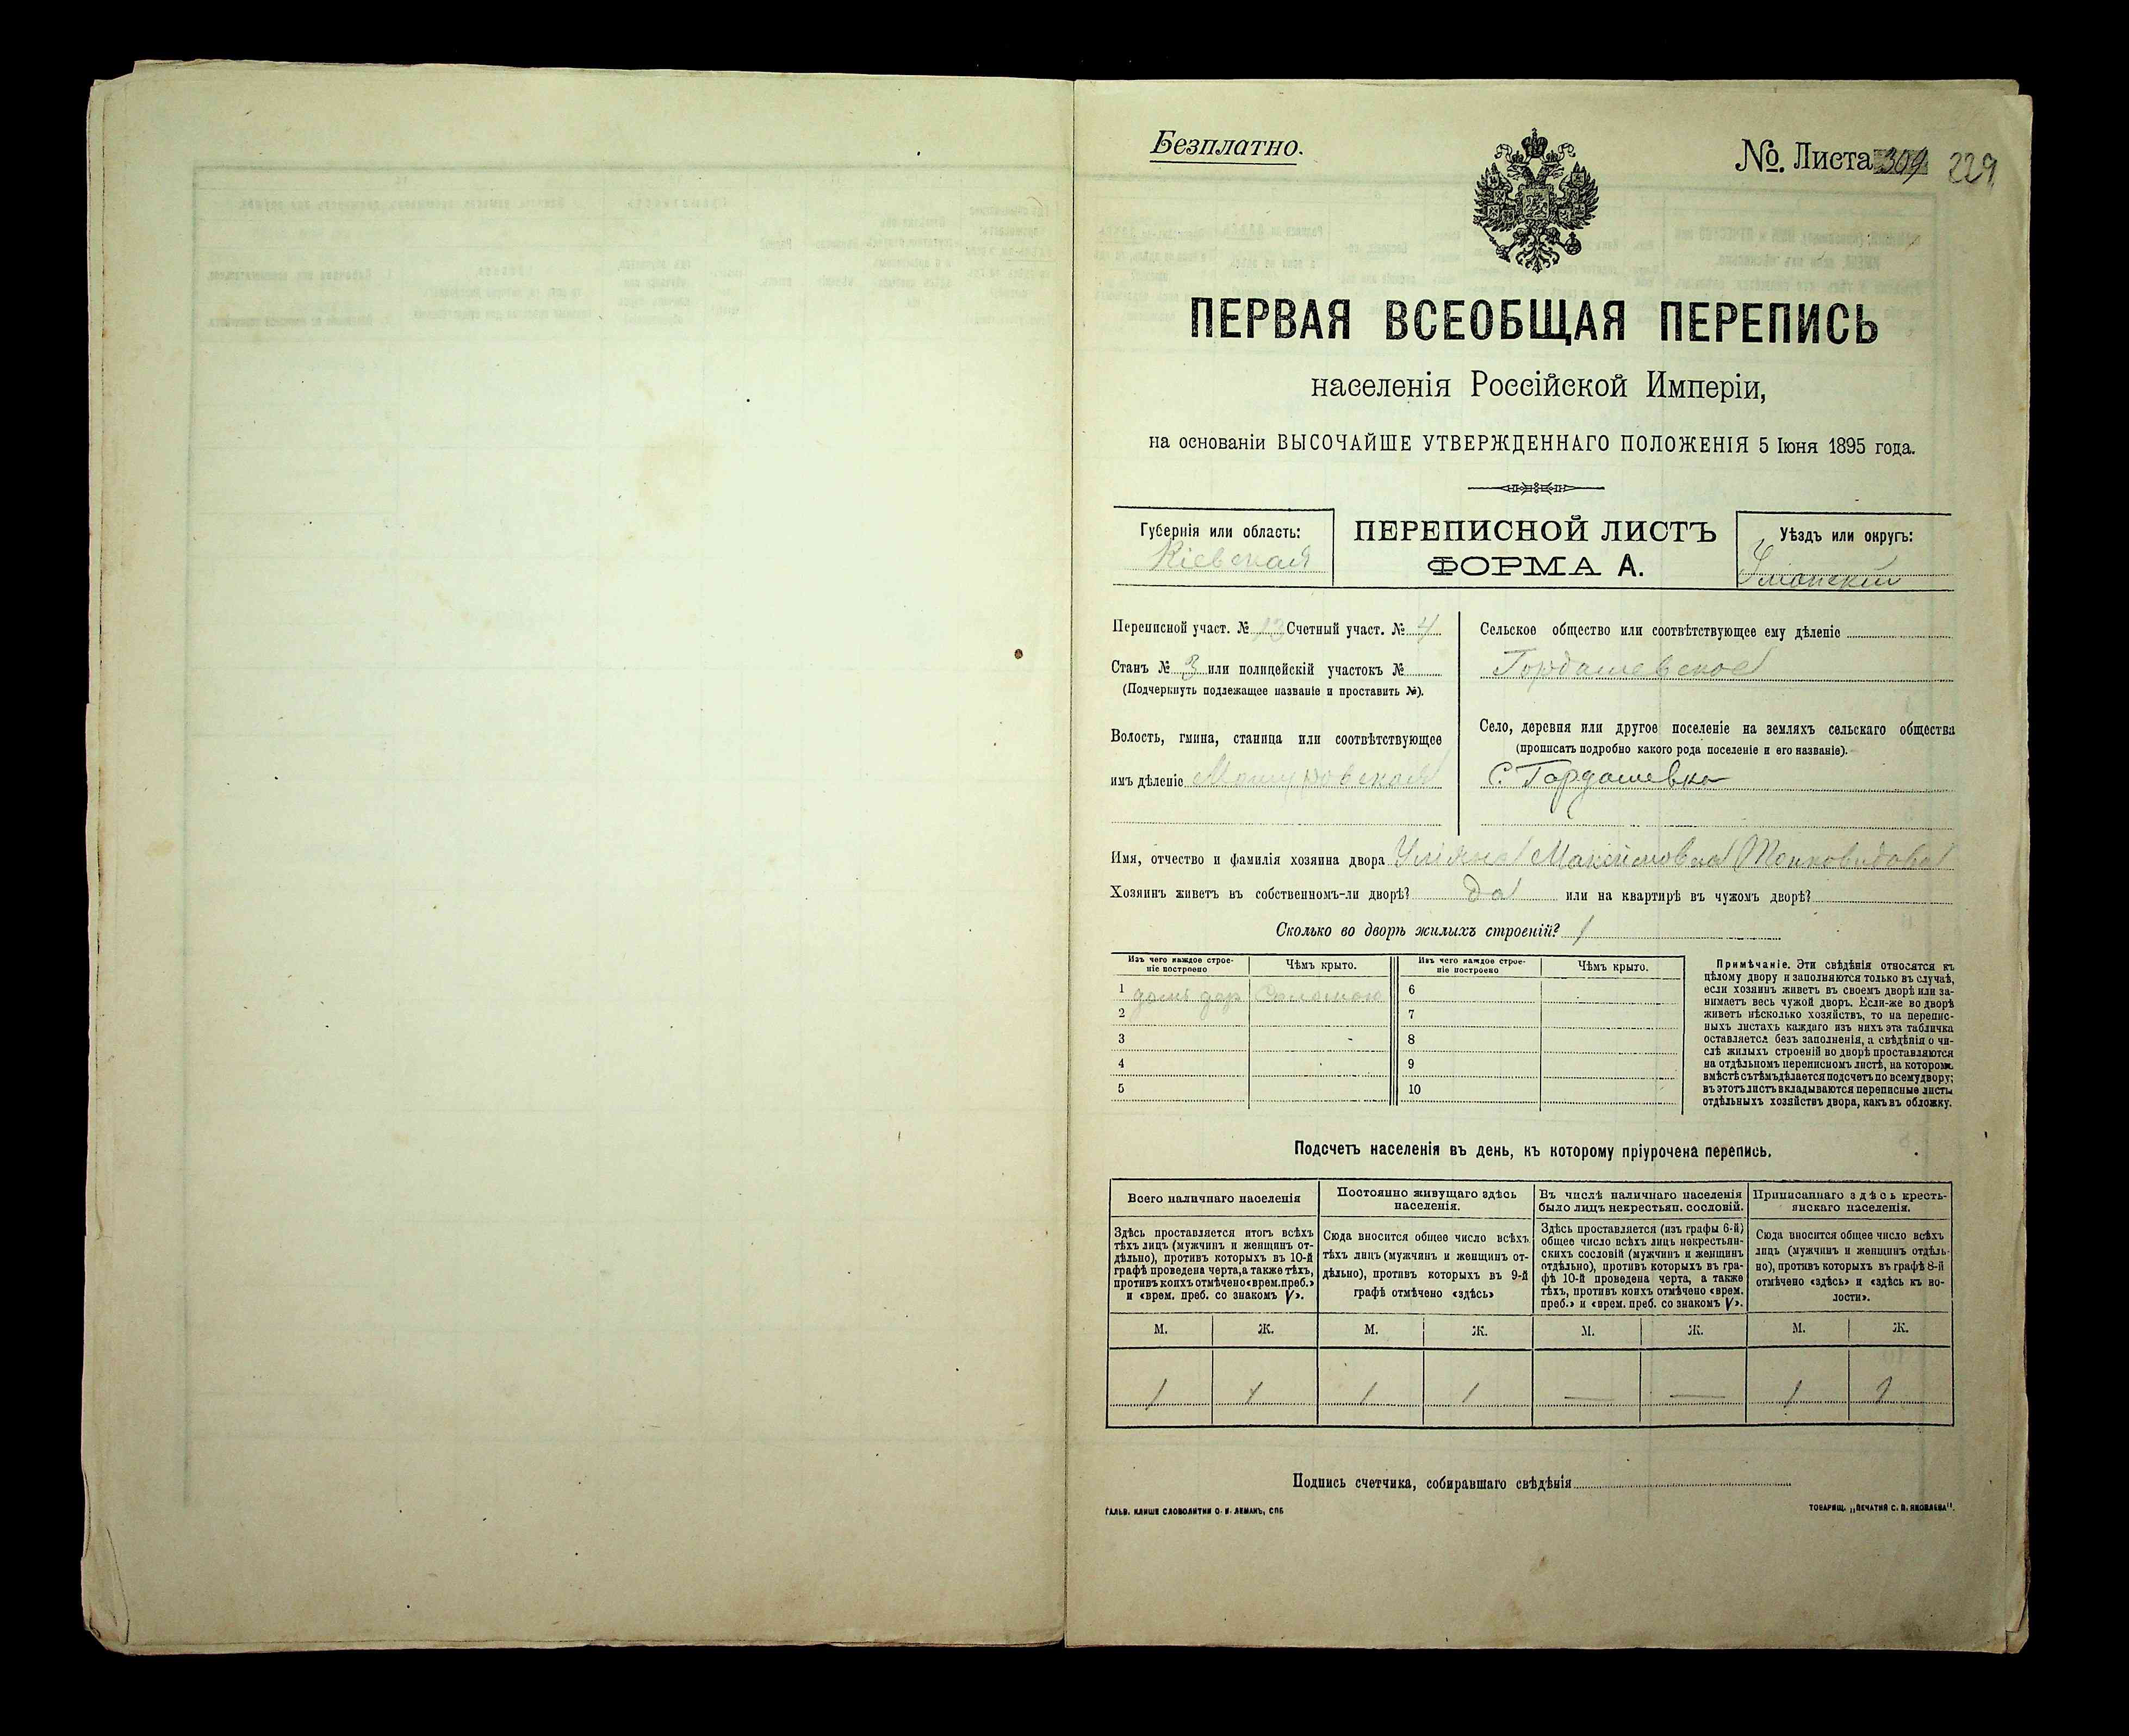 Безплатно.
№. Листа 309 229
ПЕРВАЯ ВСЕОБЩАЯ ПЕРЕПИСЬ
населенія Россійской Имперіи,
на основаніи ВЫСОЧАЙШЕ УТВЕРЖДЕННАГО ПОЛОЖЕНІЯ 5 Іюня 1895 года.
Губернія или область:
Кіевская
ПЕРЕПИСНОЙ ЛИСТЪ
ФОРМА А.
Уѣздъ или округъ:
Уманскій
Переписной участ. № 13 Счетный участ. № 4
Станъ № 3 или полицейскій участокъ №
(Подчеркнуть подлежащее названіе и проставить №).
Волость, гмина, станица или соотвѣтствующее
имъ дѣленіе Машуровская
Сельское общество или соотвѣтствующее ему дѣленіе
Гордашевское
Село, деревня или другое поселеніе на земляхъ сельскаго общества
(прописать подробно какого рода поселеніе и его названіе).
С. Гордашевка
Имя, отчество и фамилія хозяина двора Уліяна Максимовна
Хозяинъ живетъ въ собственномъ-ли дворѣ? да или на квартирѣ въ чужомъ дворѣ?
Сколько во дворѣ жилыхъ строеній? 1
Изъ чего каждое строе-
ніе построено
Чѣмъ крыто.
Изъ чего каждое строе-
ніе построено
Чѣмъ крыто.
1 домъ дер Соломою 6
2 7
3 8
4 9
5 10
Примѣчаніе. Эти свѣдѣнія относятся къ
цѣлому двору и заполняются только въ случаѣ,
если хозяинъ живетъ въ своемъ дворѣ или за-
нимаетъ весь чужой дворъ. Если-же во дворѣ
живетъ нѣсколько хозяйствъ, то на перепис-
ныхъ листахъ каждаго изъ нихъ эта табличка
оставляется безъ заполненія, а свѣдѣнія о чи-
слѣ жилыхъ строеній во дворѣ проставляются
на отдѣльномъ переписномъ листѣ, на которомъ
вмѣстѣ съ тѣмъ дѣлается подсчетъ по всему двору;
въ этотъ листъ вкладываются переписные листы
отдѣльныхъ хозяйствъ двора, какъ въ обложку.
Подсчетъ населенія въ день, къ которому пріурочена перепись.
Всего наличнаго населенія
Здѣсь проставляется итогъ всѣхъ
тѣхъ лицъ (мужчинъ и женщинъ от-
дѣльно), противъ которыхъ въ 10-й
графѣ проведена черта, а также тѣхъ,
противъ коихъ отмѣчено «врем. преб.»
и «врем. преб. со знакомъ V».
Постоянно живущаго здѣсь
населенія.
Сюда вносится общее число всѣхъ
тѣхъ лицъ (мужчинъ и женщинъ от-
дѣльно), противъ которыхъ въ 9-й
графѣ отмѣчено «здѣсь»
Въ числѣ наличнаго населенія
было лицъ некрестьян. сословій.
Здѣсь проставляется (изъ графы 6-й)
общее число всѣхъ лицъ некрестьян-
скихъ сословій (мужчинъ и женщинъ
отдѣльно), противъ которыхъ въ гра-
фѣ 10-й проведена черта, а также
тѣхъ, противъ коихъ отмѣчено «врем.
преб.» и «врем. преб. со знакомъ V».
Приписаннаго здѣсь кресть-
янскаго населенія.
Сюда вносится общее число всѣхъ
лицъ (мужчинъ и женщинъ отдѣль-
но), противъ которыхъ въ графѣ 8-й
отмѣчено «здѣсь» и «здѣсь къ во-
лости».
М. Ж. М. Ж. М. Ж. М. Ж.
1 1 1 1 — — 1 1
Подпись счетчика, собиравшаго свѣдѣнія
ГАЛЬВ. КЛИШЕ СЛОВОЛИТНИ О. И. ЛЕМАНЪ, СПБ
ТОВАРИЩ. „ПЕЧАТНЯ С. П. ЯКОВЛЕВА".